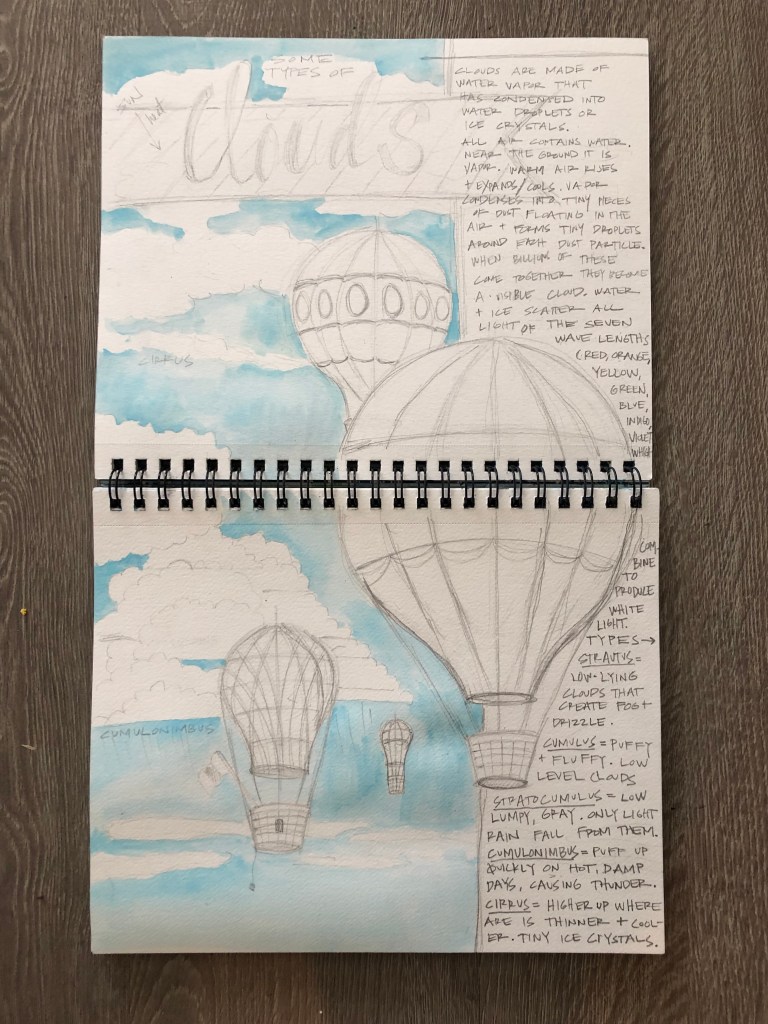 SOME
TYPES OF
Clouds
SUN
CLOUDS ARE MADE OF
WATER VAPOR THAT
HAS CONDENSED INTO
WATER DROPLETS OR
ICE CRYSTALS.
ALL AIR CONTAINS WATER.
NEAR THE GROUND IT IS
VAPOR. WARM AIR RISES
+ EXPANDS/COOLS. VAPOR
CONDENSES INTO TINY PIECES
OF DUST FLOATING IN THE
AIR + FORMS TINY DROPLETS
AROUND EACH DUST PARTICLE.
WHEN BILLIONS OF THESE
COME TOGETHER THEY BECOME
A VISIBLE CLOUD. WATER
+ ICE SCATTER ALL
LIGHT OF THE SEVEN
WAVE LENGTHS
(RED, ORANGE,
YELLOW,
GREEN,
BLUE,
INDIGO,
VIOLET
WHICH
CIRRUS
COM-
BINE
TO
PRODUCE
WHITE
LIGHT.
TYPES→
STRAUTUS =
LOW-LYING
CLOUDS THAT
CREATE FOG +
DRIZZLE.
CUMULONIMBUS
CUMULUS = PUFFY
+ FLUFFY. LOW
LEVEL CLOUDS
STRATOCUMULUS = LOW
LUMPY, GRAY. ONLY LIGHT
RAIN FALL FROM THEM.
CUMULONIMBUS = PUFF UP
QUICKLY ON HOT, DAMP
DAYS, CAUSING THUNDER.
CIRRUS = HIGHER UP WHERE
ARE IS THINNER + COOL-
ER. TINY ICE CRYSTALS.